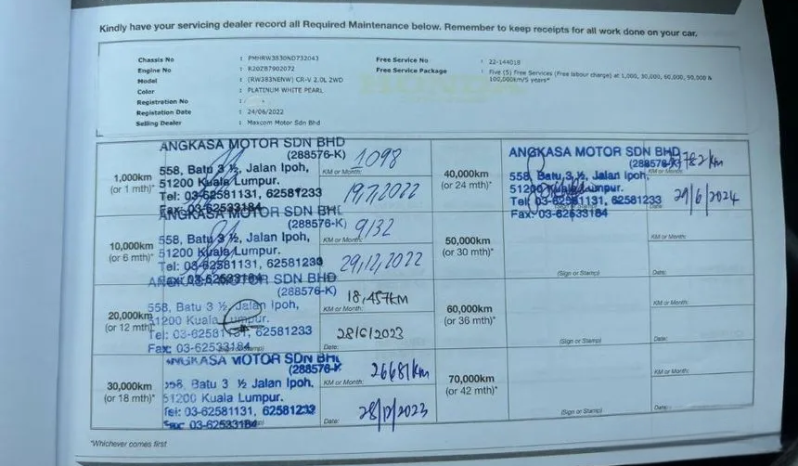 Kindly have your servicing dealer record all Required Maintenance below. Remember to keep receipts for all work done on your car.
Chassis No : PMHRW3830ND732043 Free Service No : 22-144018
Engine No : R20Z87902072 Free Service Package : Five (5) Free Services (Free labour charge) at 1,000, 30,000, 60,000, 90,000 &
Model : (RW383NENW) CR-V 2.0L 2WD 100,000km/5 years*
Color : PLATINUM WHITE PEARL
Registration No :
Registation Date : 24/06/2022
Selling Dealer : Maxcom Motor Sdn Bhd
1,000km
(or 1 mth)*
ANGKASA MOTOR SDN BHD
(288576-K)
558, Batu 3 ½, Jalan Ipoh,
51200 Kuala Lumpur.
Tel: 03-62581131, 62581233
Fax: 03-62533184
1098
KM or Month:
19,7,2022
10,000km
(or 6 mth)*
ANGKASA MOTOR SDN BHD
(288576-K)
558, Batu 3 ½, Jalan Ipoh,
51200 Kuala Lumpur.
Tel: 03-62581131, 62581233
Fax: 03-62533184
9132
KM or Month:
29,12,2022
20,000km
(or 12 mth)*
ANGKASA MOTOR SDN BHD
(288576-K)
558, Batu 3 ½, Jalan Ipoh,
51200 Kuala Lumpur.
Tel: 03-62581131, 62581233
Fax: 03-62533184
18,457km
KM or Month:
28/6/2023
Date:
30,000km
(or 18 mth)*
ANGKASA MOTOR SDN BHD
(288576-K)
558, Batu 3 ½ Jalan Ipoh,
51200 Kuala Lumpur.
Tel: 03-62581131, 62581233
Fax: 03-62533184
26681km
KM or Month:
28/12/2023
Date:
40,000km
(or 24 mth)*
ANGKASA MOTOR SDN BHD
(288576-K)
558, Batu 3 ½, Jalan Ipoh,
51200 Kuala Lumpur.
Tel: 03-62581131, 62581233
Fax: 03-62533184
29/6/2024
50,000km
(or 30 mth)*
(Sign or Stamp)
KM or Month:
Date:
60,000km
(or 36 mth)*
(Sign or Stamp)
KM or Month:
Date:
70,000km
(or 42 mth)*
(Sign or Stamp)
KM or Month:
Date:
*Whichever comes first